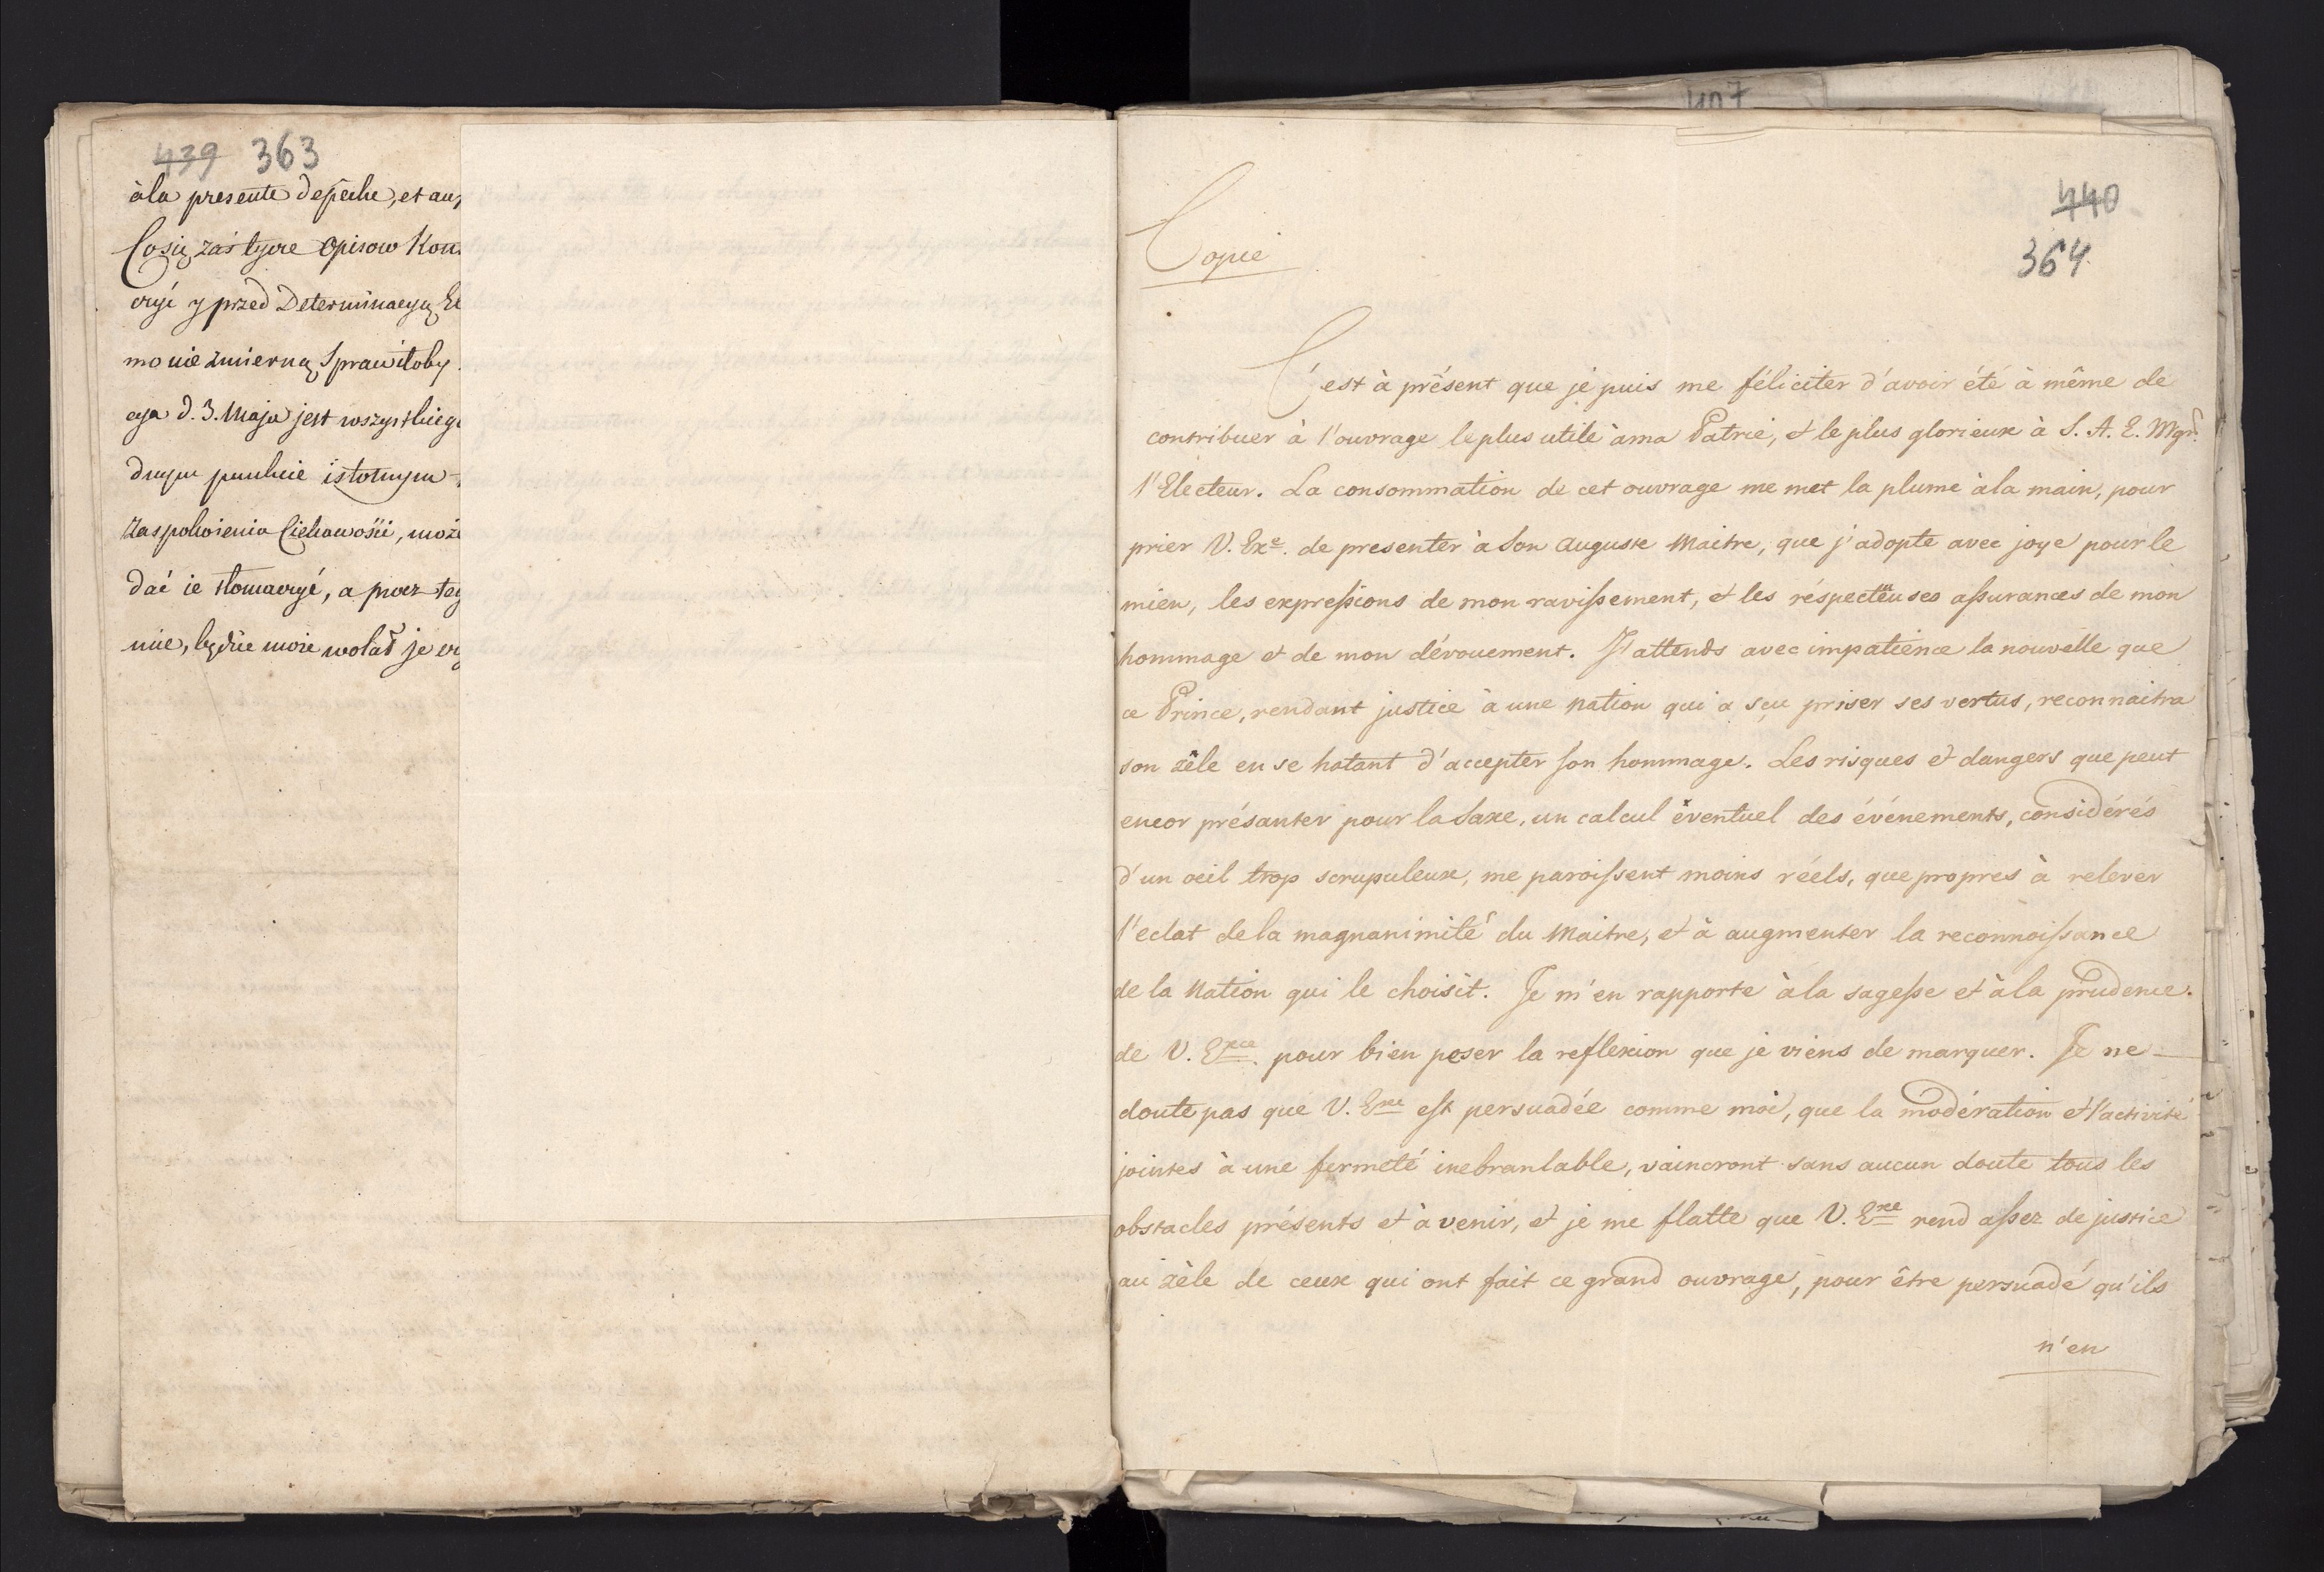 439 363
à la presente depêche, et au
Cosię zaś tycze Opisow Kon
czyć y przed Determinacyą El
mo nie zmierną sprawiłoby
cya d. 3. Maja jest wszystkieg
drugim punkcie istotnym
Zaspokoienia Ciekawości, moż
dać ie tłomaczyć, a przez teg
nie, będzie może wolał je
407
440
364.
Copie
C'est à présent que je puis me féliciter d'avoir été à même de
contribuer à l'ouvrage le plus utile à ma Patrie, et le plus glorieux à S. A. E. Mgr.
l'Electeur. La consommation de cet ouvrage me met la plume à la main, pour
prier V. Exe. de presenter à Son Auguste Maitre, que j'adopte avec joye pour le
mien, les expressions de mon ravissement, et les réspectëuses assurances de mon
hommage et de mon dévouement. J'attends avec impatience la nouvelle que
ce Prince, rendant justice à une Nation qui a sçu priser ses vertus, reconnaitra
son zèle en se hatant d'accepter son hommage. Les risques et dangers que peut
encor présanter pour la Saxe, un calcul éventuel des événements, considérés
d'un oeil trop scrupuleux, me paroissent moins réels, que propres à relever
l'eclat de la magnanimité du Maitre, et à augmenter la reconnoissance
de la Nation qui le choisit. Je m'en rapporte à la sagesse et à la prudence.
de V. Exce. pour bien peser la reflexion que je viens de marquer. Je ne
doute pas que V. Exce est persuadée comme moi, que la modération et l'activité
jointes à une fermeté inebranlable, vaincront sans aucun doute tous les
obstacles présents et à venir, et je me flatte que V. Exce rend assez de justice
au zèle de ceux qui ont fait ce grand ouvrage, pour être persuadé qu'ils
n'en